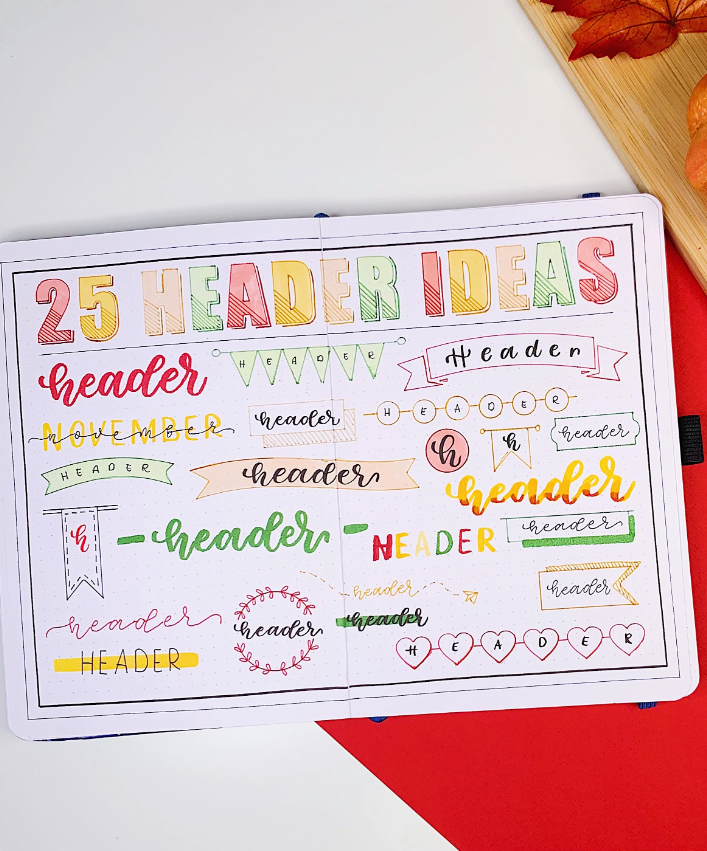 25 HEADER IDEAS
header
HEADER
Header
NOVEMBER
november
header
HEADER
h
h
header
HEADER
header
header
h
header
HEADER
header
header
header
header
header
header
HEADER
HEADER